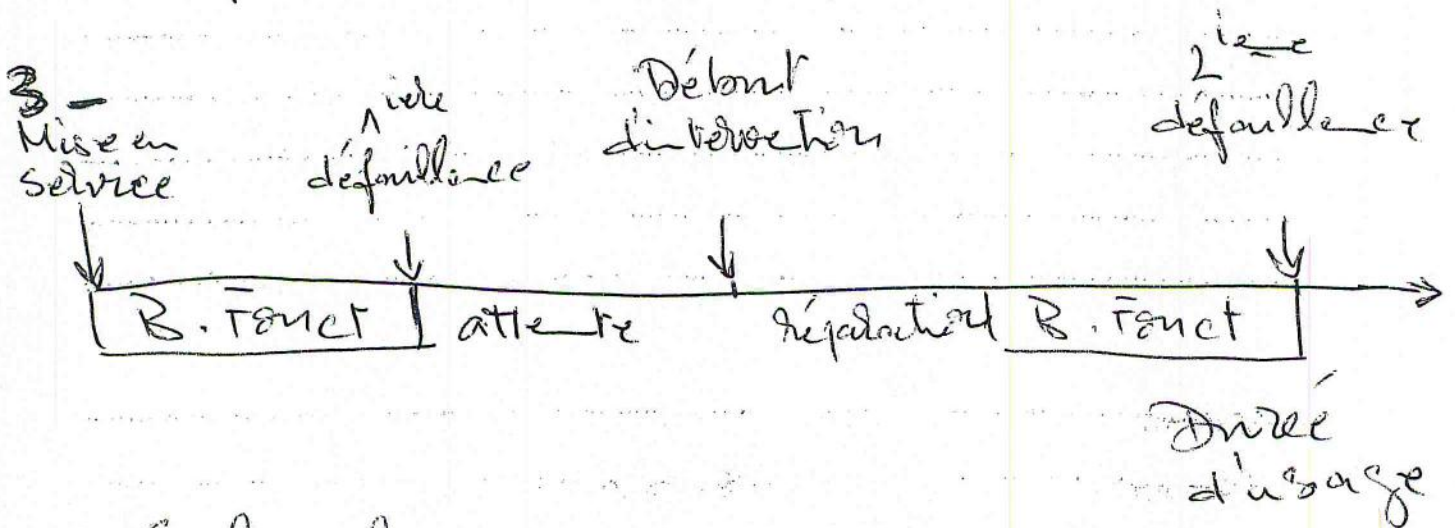 3 -
Mise en
Service
1 ière
défaillance
Début
d'intervention
2 ième
défaillance
B. Fonct attente réparation B. Fonct
Durée
d'usage